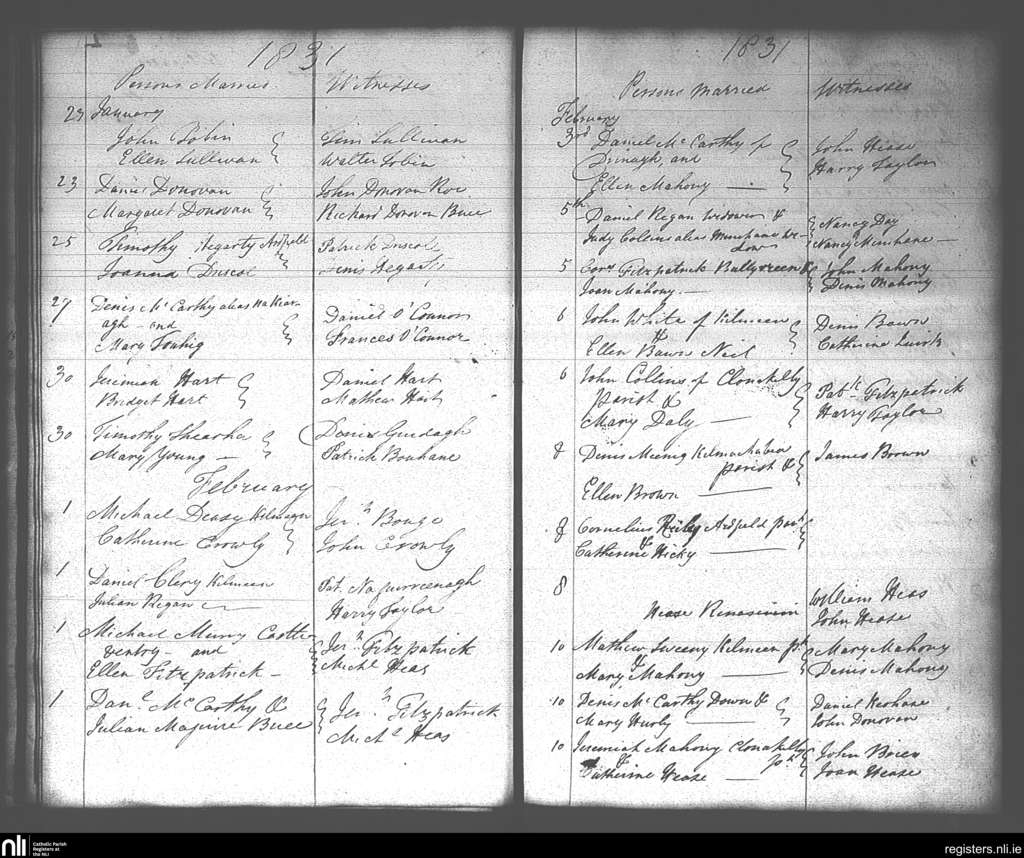 1831
Persons Married Witnesses
23 January
John Tobin
Ellen Sullivan
Tim Sullivan
Walter Tobin
23 Daniel Donovan
Margaret Donovan
John Donovan Roe
Richard Donovan Buee
25 Timothy Hegarty Ardfield
Joanna Driscol
Patrick Driscol
Denis Hegarty
27 Denis Mc Carthy alias
agh - and
Mary Touhig
Daniel O'Connor
Frances O'Connor
30 Jeremiah Hart
Bridget Hart
Daniel Hart
Mathew Hart
30 Timothy Sheaha
Mary Young -
Denis
Patrick Bouhane
February
1 Michael Deasy Kilmeen
Catherine Crowly
Jerh
John Crowly
1 Daniel Clery Kilmeen
Julian Regan
Pat.
Harry Taylor
1 Michael Murry Castle
ventry - and
Ellen Fitzpatrick -
Jerh Fitzpatrick
Michl Heas
1 Danl Mc Carthy &
Julian Maguire Buee
Jerh Fitzpatrick
Michl Heas
1831
Persons married Witnesses
February
3rd Daniel Mc Carthy of
Drinagh, and
Ellen Mahony -
John Hease
Harry Taylor
5th Daniel Regan widower &
Judy Collins alias Minihane wi-
dow
Nancy Day
Nancy Minihane -
5 Cors Fitzpatrick &
Joan Mahony. -
John Mahony
Denis Mahony
6 John White of Kilmeen
&
Ellen Bawn Neil
Denis Bawn
Catherine
6 John Collins of Clonakilty
parish &
Mary Daly -
Patk Fitzpatrick
Harry Taylor
8 Denis Meenig Kilmachabea
parish &
Ellen Brown -
James Brown
8 Cornelius Ardfield
&
Catherine Hicky -
8
Hease
William Heas
John Hease
10 Mathew Sweeny Kilmeen ph
&
Mary Mahony -
Mary Mahony
Denis Mahony
10 Denis Mc Carthy Down &
Mary Hurly -
Daniel Keohane
John Donovan
10 Jeremiah Mahony Clonakilty
& ph
Catherine Hease -
John Brien
Joan Hease
nli
Catholic Parish
Registers at
the NLI
registers.nli.ie